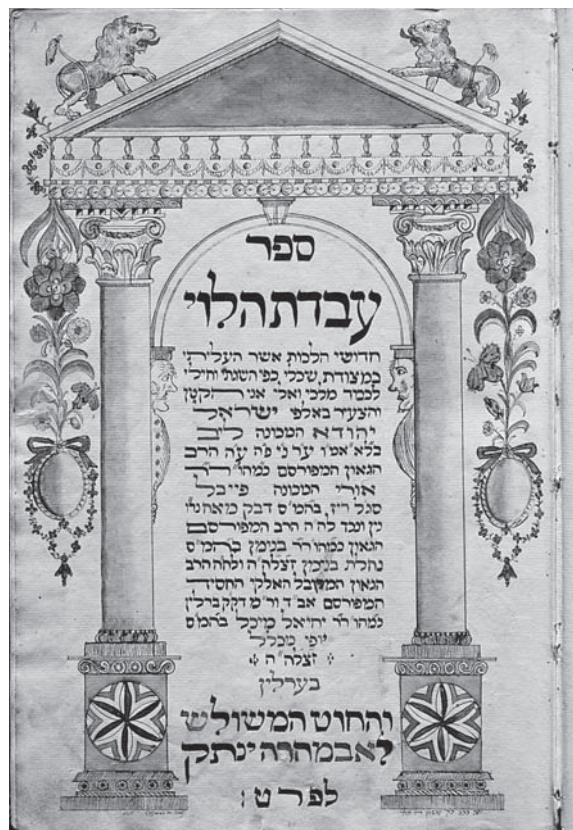 ספר
עבדת הלוי
חדושי הלכות אשר העליתי
במצודת שכלי כפי השגתי וחילי
לכביד מלכי ואלי אני הקטן
והצעיר באלפי ישראל
יהודא המכונה ליב
בלא״א
הגאון המפורסם כמהו׳ ר״ר
אורי המכונה פייבל
סג״ל
נין ונכד לה״ה הרב המפורסם
הגאון כמהו׳ רר בנימן בהמ״ס
נחלת בנימן זצלה״ה ולחה הרב
הגאון המקובל האלקי החסיד
המפורסם אב״ד ור״מ דק״ק ברלין
כמהו׳ רר יחיאל מיכל בהמ״ס
יופי מכלל
זצלה״ה
בערלין
והחוט המשולש
לא במהרה ינתק
לפרט׃